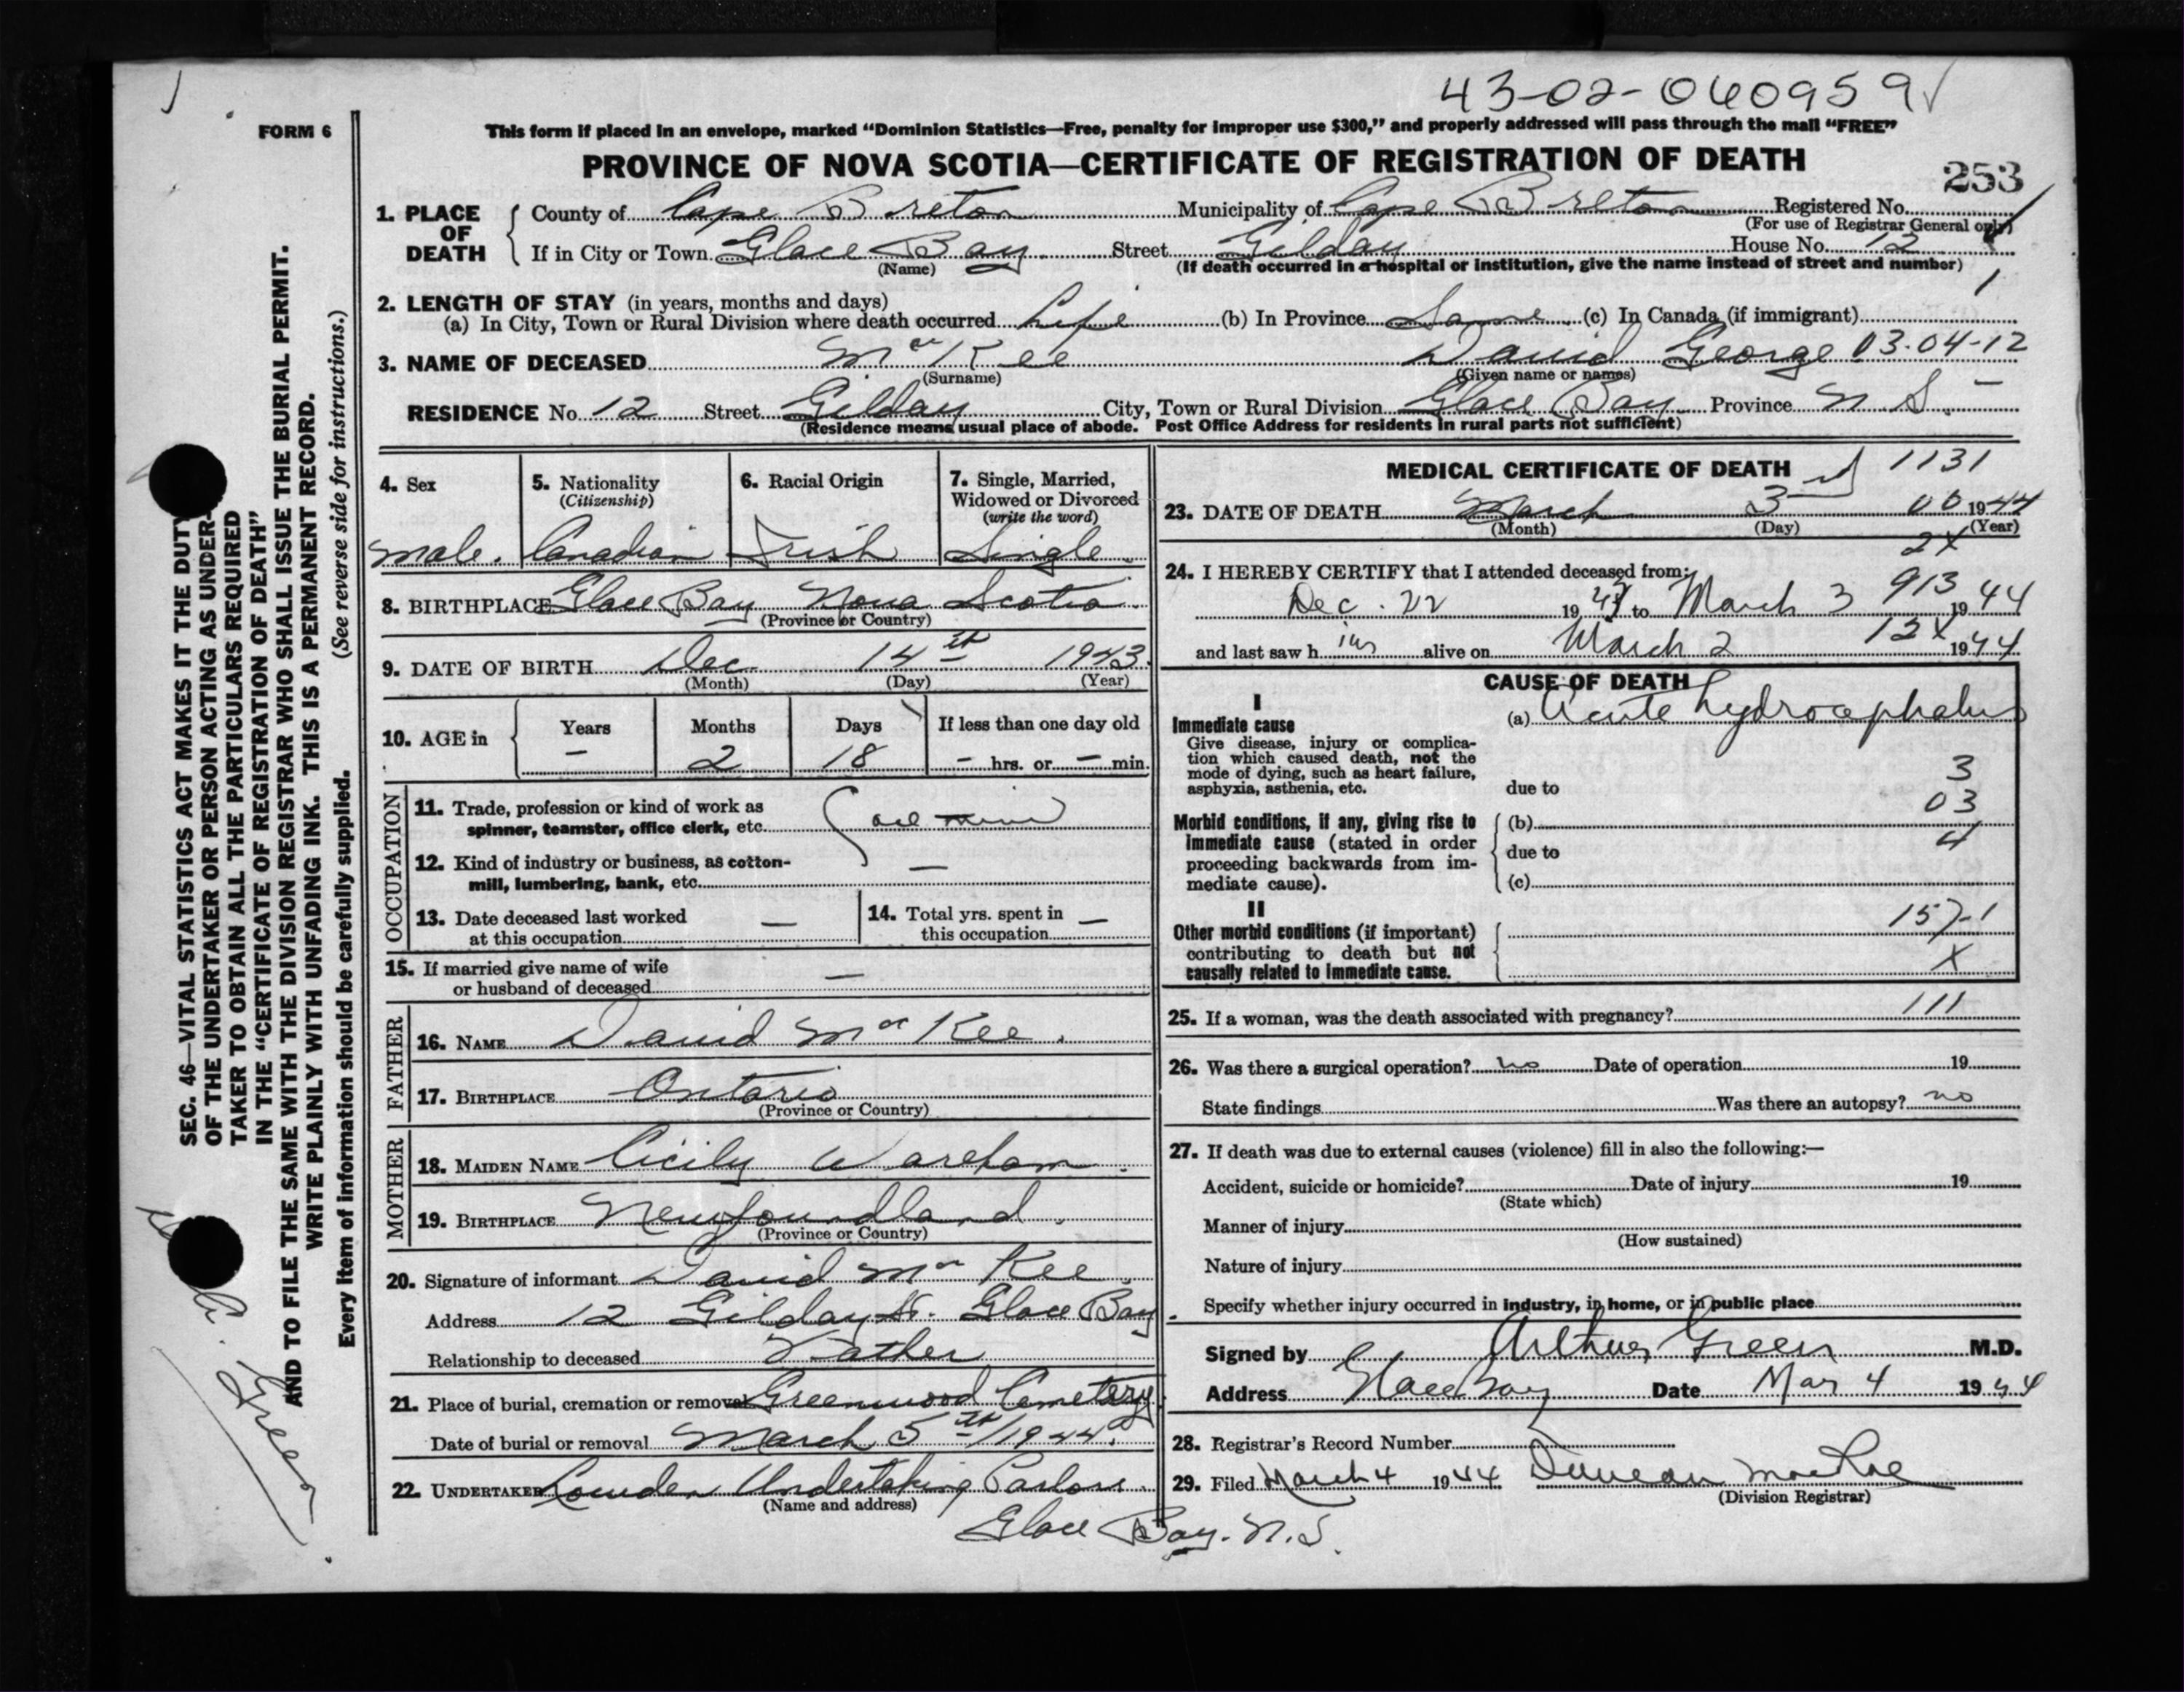 43-02-060959
FORM 6
This form if placed in an envelope, marked "Dominion Statistics—Free, penalty for improper use $300," and properly addressed will pass through the mail "FREE"
PROVINCE OF NOVA SCOTIA—CERTIFICATE OF REGISTRATION OF DEATH
253
1. PLACE OF DEATH County of Cape Breton Municipality of Cape Breton Registered No.
(For use of Registrar General only)
If in City or Town Glace Bay Street Gilday House No. 12
(Name) (If death occurred in a hospital or institution, give the name instead of street and number)
1
2. LENGTH OF STAY (in years, months and days)
(a) In City, Town or Rural Division where death occurred Life (b) In Province Same (c) In Canada (if immigrant)
3. NAME OF DECEASED MacKee David George 03-04-12
(Surname) (Given name or names)
RESIDENCE No. 12 Street Gilday City, Town or Rural Division Glace Bay Province N.S.
(Residence means usual place of abode. Post Office Address for residents in rural parts not sufficient)
4. Sex 5. Nationality (Citizenship) 6. Racial Origin 7. Single, Married, Widowed or Divorced (write the word)
male. Canadian Irish Single
8. BIRTHPLACE Glace Bay Nova Scotia
(Province or Country)
9. DATE OF BIRTH Dec. 14th 1943
(Month) (Day) (Year)
10. AGE in Years Months Days If less than one day old
– 2 18 – hrs. or – min.
OCCUPATION
11. Trade, profession or kind of work as spinner, teamster, office clerk, etc.
12. Kind of industry or business, as cotton-mill, lumbering, bank, etc. —
13. Date deceased last worked at this occupation — 14. Total yrs. spent in this occupation —
15. If married give name of wife or husband of deceased —
FATHER
16. NAME David MacKee
17. BIRTHPLACE Ontario
(Province or Country)
MOTHER
18. MAIDEN NAME Cicily Wareham
19. BIRTHPLACE Newfoundland
(Province or Country)
20. Signature of informant David MacKee
Address 12 Gilday St. Glace Bay
Relationship to deceased Father
21. Place of burial, cremation or removal Greenwood Cemetery
Date of burial or removal March 5th/1944
22. UNDERTAKER Undertaking Parlors.
(Name and address)
Glace Bay. N.S.
MEDICAL CERTIFICATE OF DEATH 1131
23. DATE OF DEATH March 3 00 1944
(Month) (Day) (Year)
2X
24. I HEREBY CERTIFY that I attended deceased from:
913
Dec. 22 19 to March 3 1944
12X
and last saw him alive on March 2 1944
CAUSE OF DEATH
I
Immediate cause (a) Acute hydrocephalus
Give disease, injury or complication which caused death, not the mode of dying, such as heart failure, asphyxia, asthenia, etc.
due to
3
03
4
Morbid conditions, if any, giving rise to immediate cause (stated in order proceeding backwards from immediate cause).
(b)
due to
(c)
II
157-1
X
Other morbid conditions (if important) contributing to death but not causally related to immediate cause.
25. If a woman, was the death associated with pregnancy? 111
26. Was there a surgical operation? no Date of operation 19
State findings Was there an autopsy? no
27. If death was due to external causes (violence) fill in also the following:—
Accident, suicide or homicide? Date of injury 19
(State which)
Manner of injury
(How sustained)
Nature of injury
Specify whether injury occurred in industry, in home, or in public place
Signed by Arthur Green M.D.
Address Glace Bay Date Mar 4 1944
28. Registrar's Record Number
29. Filed March 4 1944 Duncan MacRae
(Division Registrar)
SEC. 46—VITAL STATISTICS ACT MAKES IT THE DUTY
OF THE UNDERTAKER OR PERSON ACTING AS UNDER-
TAKER TO OBTAIN ALL THE PARTICULARS REQUIRED
IN THE "CERTIFICATE OF REGISTRATION OF DEATH"
AND TO FILE THE SAME WITH THE DIVISION REGISTRAR WHO SHALL ISSUE THE BURIAL PERMIT.
WRITE PLAINLY WITH UNFADING INK. THIS IS A PERMANENT RECORD.
(See reverse side for instructions.)
Every item of information should be carefully supplied.
Green